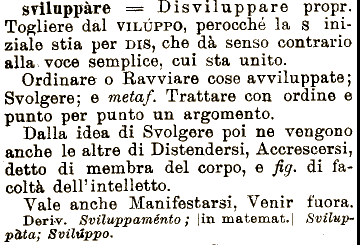 sviluppàre = Disviluppare propr.
Togliere dal VILÚPPO, perocchè la s ini-
ziale stia per DIS, che dà senso contrario
alla voce semplice, cui sta unito.
Ordinare o Ravviare cose avviluppate;
Svolgere; e metaf. Trattare con ordine e
punto per punto un argomento.
Dalla idea di Svolgere poi ne vengono
anche le altre di Distendersi, Accrescersi,
detto di membra del corpo, e fig. di fa-
coltà dell'intelletto.
Vale anche Manifestarsi, Venir fuora.
Deriv. Sviluppaménto; |in matemat.| Svilup-
pàta; Svilúppo.